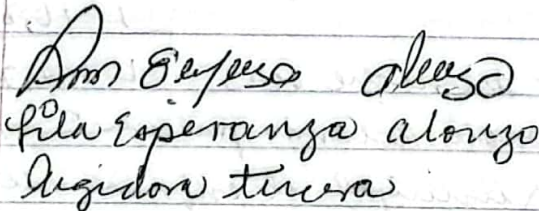 Esperanza Alonzo
Lila Esperanza Alonzo
Regidora tercera